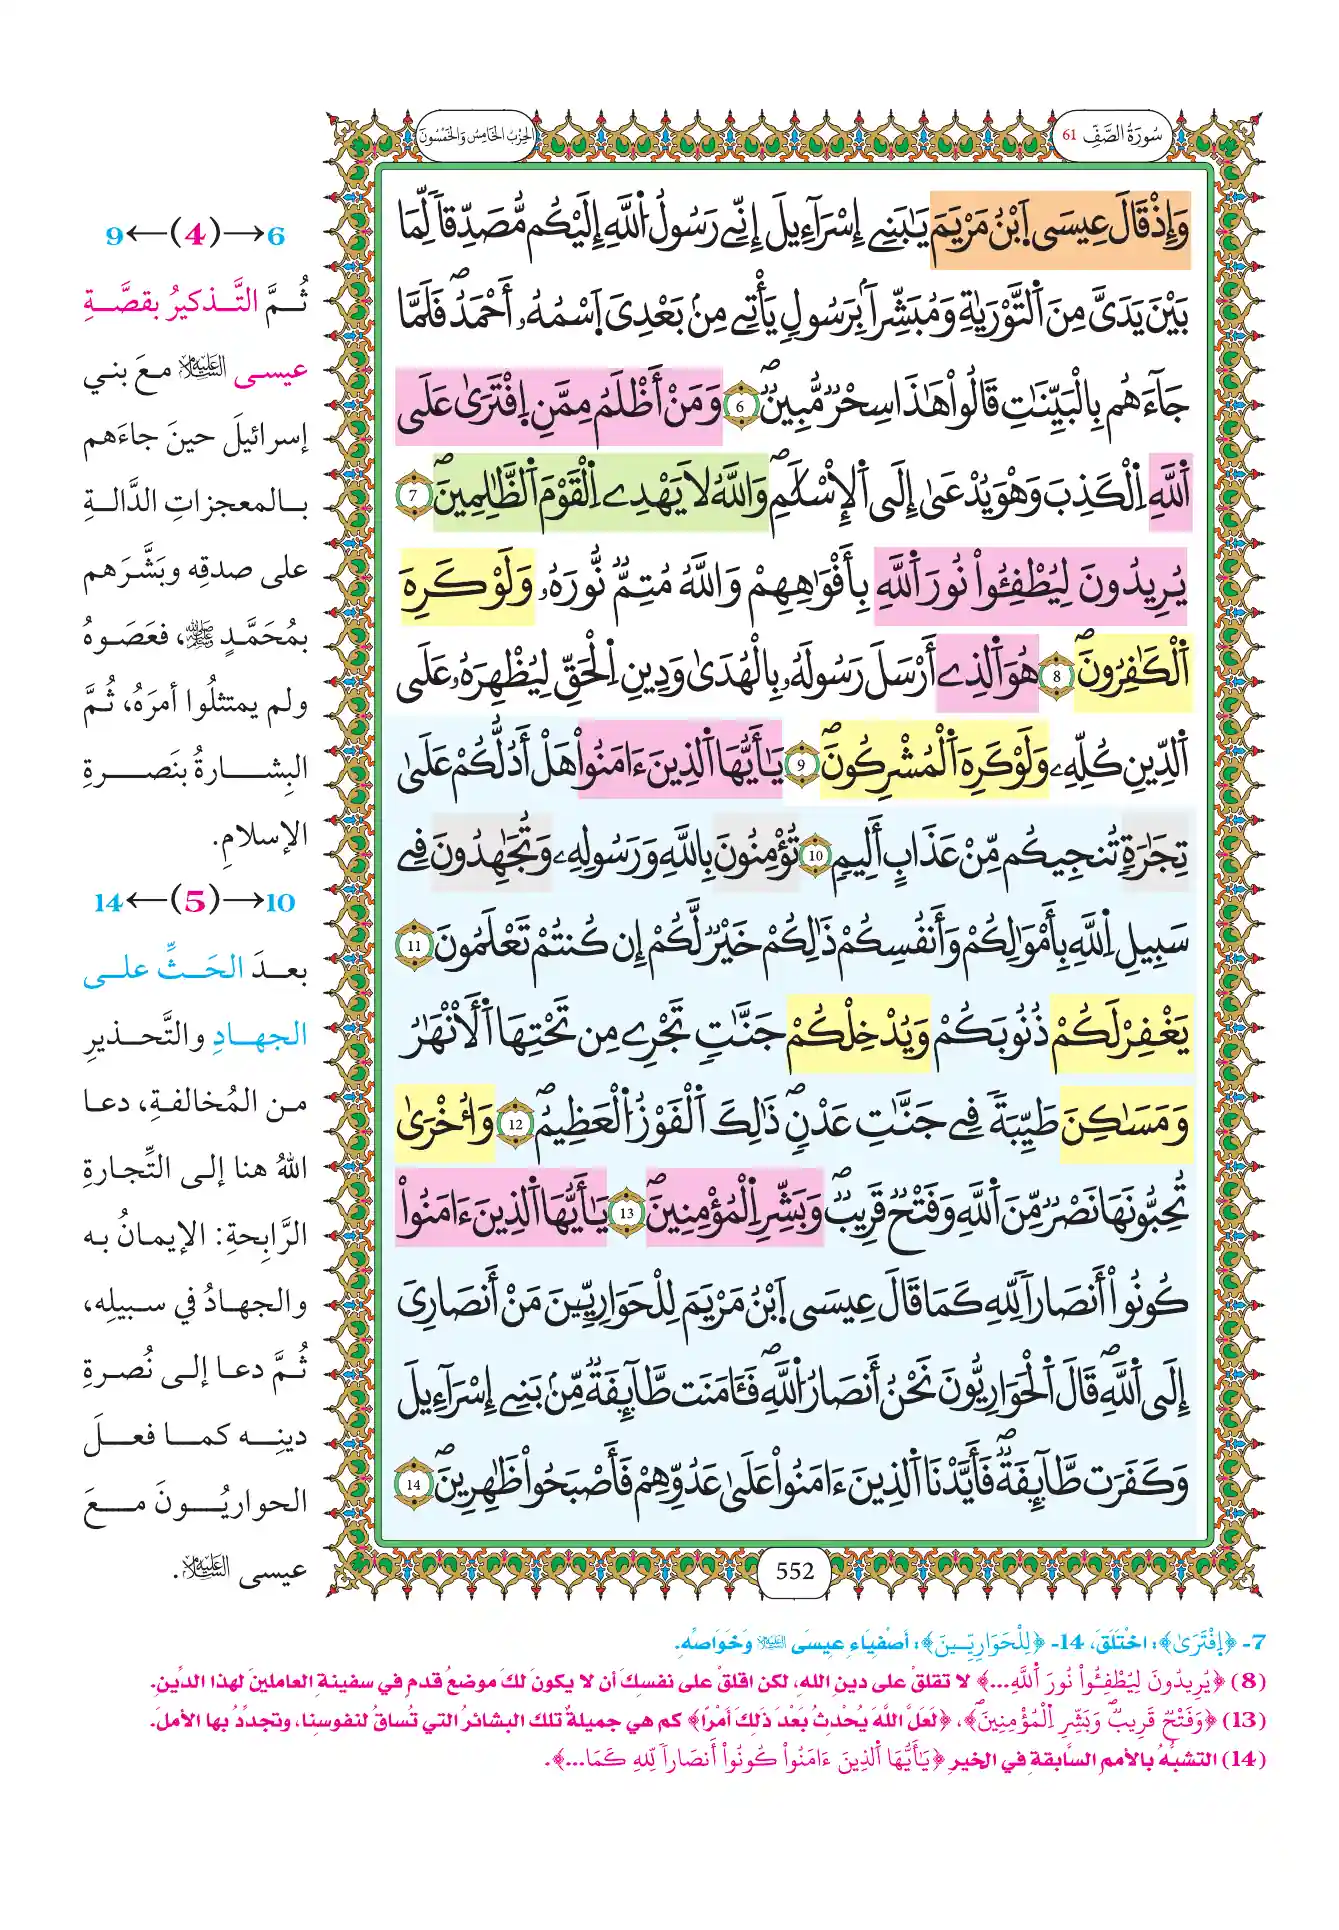 سُورَةُ الصَّفِّ 61
الحِزْبُ الخَامِسُ وَالخَمْسُونَ
وَإِذْ قَالَ عِيسَى اَ۪بْنُ مَرْيَمَ يَٰبَنِےٓ إِسْرَآءِيلَ إِنِّے رَسُولُ اُ۬للَّهِ إِلَيْكُم مُّصَدِّقاٗ لِّمَا
بَيْنَ يَدَيَّ مِنَ اَ۬لتَّوْرَيٰةِ وَمُبَشِّراَۢ بِرَسُولٖ يَأْتِے مِنۢ بَعْدِيَ اَ۪سْمُهُۥٓ أَحْمَدُۖ فَلَمَّا
جَآءَهُم بِالْبَيِّنَٰتِ قَالُواْ هَٰذَا سِحْرٞ مُّبِينٞۖ 6 وَمَنْ أَظْلَمُ مِمَّنِ اِ۪فْتَرَىٰ عَلَى
اَ۬للَّهِ اِ۬لْكَذِبَ وَهْوَ يُدْعَىٰٓ إِلَى اَ۬لْإِسْلَٰمِۖ وَاللَّهُ لَا يَهْدِے اِ۬لْقَوْمَ اَ۬لظَّٰلِمِينَۖ 7
يُرِيدُونَ لِيُطْفِـُٔواْ نُورَ اَ۬للَّهِ بِأَفْوَٰهِهِمْ وَاللَّهُ مُتِمّٞ نُّورَهُۥ وَلَوْ كَرِهَ
اَ۬لْكَٰفِرُونَۖ 8 هُوَ اَ۬لذِےٓ أَرْسَلَ رَسُولَهُۥ بِالْهُدَىٰ وَدِينِ اِ۬لْحَقِّ لِيُظْهِرَهُۥ عَلَى
اَ۬لدِّينِ كُلِّهِۦ وَلَوْ كَرِهَ اَ۬لْمُشْرِكُونَۖ 9 يَٰٓأَيُّهَا اَ۬لذِينَ ءَامَنُواْ هَلْ أَدُلُّكُمْ عَلَىٰ
تِجَٰرَةٖ تُنجِيكُم مِّنْ عَذَابٍ أَلِيمٖ 10 تُؤْمِنُونَ بِاللَّهِ وَرَسُولِهِۦ وَتُجَٰهِدُونَ فِے
سَبِيلِ اِ۬للَّهِ بِأَمْوَٰلِكُمْ وَأَنفُسِكُمْ ذَٰلِكُمْ خَيْرٞ لَّكُمْ إِن كُنتُمْ تَعْلَمُونَ 11
يَغْفِرْ لَكُمْ ذُنُوبَكُمْ وَيُدْخِلْكُمْ جَنَّٰتٖ تَجْرِے مِن تَحْتِهَا اَ۬لْأَنْهَٰرُ
وَمَسَٰكِنَ طَيِّبَةٗ فِے جَنَّٰتِ عَدْنٖۖ ذَٰلِكَ اَ۬لْفَوْزُ اُ۬لْعَظِيمُۖ 12 وَأُخْرَىٰ
تُحِبُّونَهَا نَصْرٞ مِّنَ اَ۬للَّهِ وَفَتْحٞ قَرِيبٞۖ وَبَشِّرِ اِ۬لْمُؤْمِنِينَۖ 13 يَٰٓأَيُّهَا اَ۬لذِينَ ءَامَنُواْ
كُونُوٓاْ أَنصَاراٗ لِّلهِ كَمَا قَالَ عِيسَى اَ۪بْنُ مَرْيَمَ لِلْحَوَارِيِّـۧنَ مَنْ أَنصَارِيَ
إِلَى اَ۬للَّهِۖ قَالَ اَ۬لْحَوَارِيُّونَ نَحْنُ أَنصَارُ اُ۬للَّهِۖ فَـَٔامَنَت طَّآئِفَةٞ مِّنۢ بَنِےٓ إِسْرَآءِيلَ
وَكَفَرَت طَّآئِفَةٞۖ فَأَيَّدْنَا اَ۬لذِينَ ءَامَنُواْ عَلَىٰ عَدُوِّهِمْ فَأَصْبَحُواْ ظَٰهِرِينَۖ 14
552
6→(4)←9
ثُمَّ التَّذكيرُ بقصَّةِ
عيسى عليه السلام معَ بني
إسرائيلَ حينَ جاءَهم
بالمعجزاتِ الدَّالةِ
على صدقِه وبَشَّرَهم
بمُحَمَّدٍ ﷺ، فعَصَوهُ
ولم يمتثلُوا أمرَهُ، ثُمَّ
البِشارةُ بنَصرةِ
الإسلامِ.
10→(5)←14
بعدَ الحَثِّ على
الجهادِ والتَّحذيرِ
من المُخالفةِ، دعا
اللهُ هنا إلى التِّجارةِ
الرَّابِحةِ: الإيمانُ به
والجهادُ في سبيلِه،
ثُمَّ دعا إلى نُصرةِ
دينِه كما فعلَ
الحواريُّونَ معَ
عيسى عليه السلام.
7- ﴿اِ۪فْتَرَىٰ﴾: اخْتَلَقَ، 14- ﴿لِلْحَوَارِيِّـۧنَ﴾: أَصْفِيَاءِ عِيسَى عليه السلام وَخَوَاصِّهِ.
(8) ﴿يُرِيدُونَ لِيُطْفِـُٔواْ نُورَ اَ۬للَّهِ...﴾ لا تقلقْ على دينِ اللهِ، لكن اقلقْ على نفسكَ أن لا يكون لكَ موضعُ قدم في سفينةِ العاملينَ لهذا الدِّينِ.
(13) ﴿وَفَتْحٞ قَرِيبٞۖ وَبَشِّرِ اِ۬لْمُؤْمِنِينَۖ﴾، ﴿لَعَلَّ اللَّهَ يُحْدِثُ بَعْدَ ذَلِكَ أَمْرًا﴾ كم هي جميلةٌ تلك البشائرُ التي تُساقُ لنفوسِنا، وتجدِّدُ بها الأملَ.
(14) التشبُّهُ بالأممِ السَّابقةِ في الخيرِ ﴿يَٰٓأَيُّهَا اَ۬لذِينَ ءَامَنُواْ كُونُوٓاْ أَنصَاراٗ لِّلهِ كَمَا...﴾.